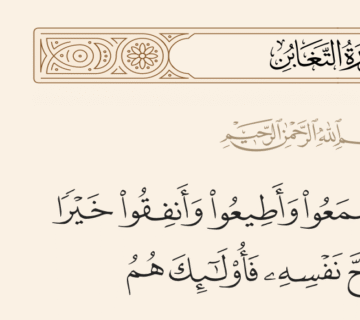 التَّغَابُن
ٱللَّهِ ٱلرَّحْمَٰنِ ٱلرَّحِيمِ
وَأَطِيعُوا۟ وَأَنفِقُوا۟ خَيْرًا
نَفْسِهِۦ فَأُو۟لَٰٓئِكَ هُمُ